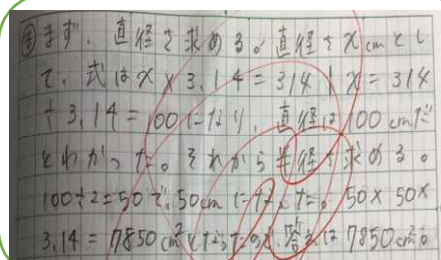 ㋐まず、直径を求める。直径をxcmとし
て、式はx×3.14=314 x=314
÷3.14=100になり、直径は100cmだ
とわかった。それから半径を求める。
100÷2=50で、50cmだった。50×50×
3.14=7850cm²となったので、答えは7850cm²。